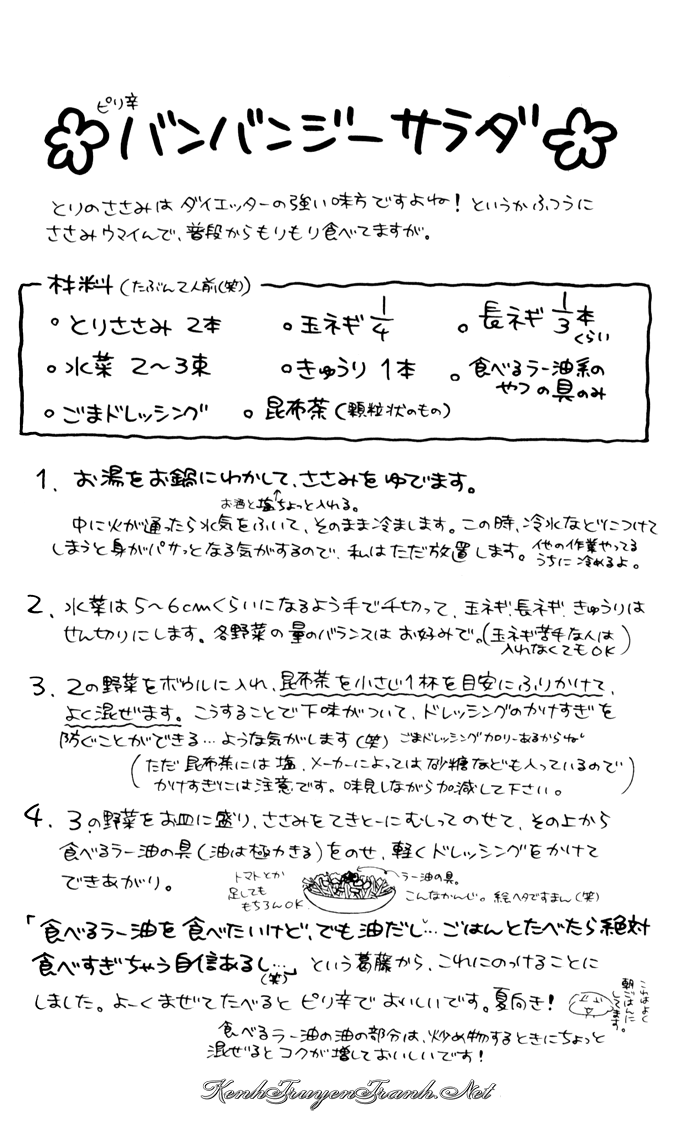 ピリ辛
バンバンジーサラダ
とりのささみは ダイエッターの強い味方ですよね！というかふつうに
ささみウマイんで、普段からもりもり食べてますが。
材料(たぶん2人前(笑))
。とりささみ 2本
。玉ネギ 1/4
。長ネギ 1/3本
くらい
。水菜 2〜3束
。きゅうり 1本
。食べるラー油系の
やつの具のみ
。ごまドレッシング
。昆布茶(顆粒状のもの)
1、お湯をお鍋にわかして、ささみをゆでます。
お酒と塩ちょっと入れる。
中に火が通ったら水気をふいて、そのまま冷まします。この時、冷水などにつけて
しまうと身がパサっとなる気がするので、私はただ放置します。他の作業やってる
うちに冷めるよ。
2、水菜は5〜6cmくらいになるよう手で千切って、玉ネギ、長ネギ、きゅうりは
せん切りにします。各野菜の量のバランスはお好みで。(玉ネギ苦手な人は
入れなくてもOK)
3、2の野菜をボウルに入れ、昆布茶を小さじ1杯を目安にふりかけて、
よく混ぜます。こうすることで下味がついて、ドレッシングのかけすぎを
防ぐことができる…ような気がします(笑) ごまドレッシングカロリーあるからね
(ただ昆布茶には塩、メーカーによっては砂糖なども入っているので
かけすぎには注意です。味見しながら加減して下さい。)
4、3の野菜をお皿に盛り、ささみをてきとーにむしってのせて、その上から
食べるラー油の具(油は極力きる)をのせ、軽くドレッシングをかけて
できあがり。
トマトとか
足しても
もちろんOK
ラー油の具。
こんなかんじ。絵ヘタですまん(笑)
「食べるラー油を食べたいけど、でも油だし…ごはんとたべたら絶対
食べすぎちゃう自信あるし…」という葛藤から、これにのっけることに
(笑)
しました。よーくまぜてたべるとピリ辛でおいしいです。夏向き！
これはよく
朝ごはんに
してます。
食べるラー油の油の部分は、炒め物するときにちょっと
混ぜるとコクが増しておいしいです！
KenhTruyenTranh.Net